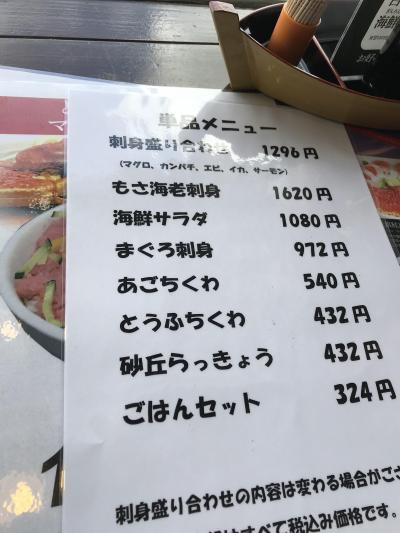 単品メニュー
刺身盛り合わせ 1296円
(マグロ、カンパチ、エビ、イカ、サーモン)
もさ海老刺身 1620円
海鮮サラダ 1080円
まぐろ刺身 972円
あごちくわ 540円
とうふちくわ 432円
砂丘らっきょう 432円
ごはんセット 324円
刺身盛り合わせの内容は変わる場合がござ
はすべて税込み価格です。
海鮮